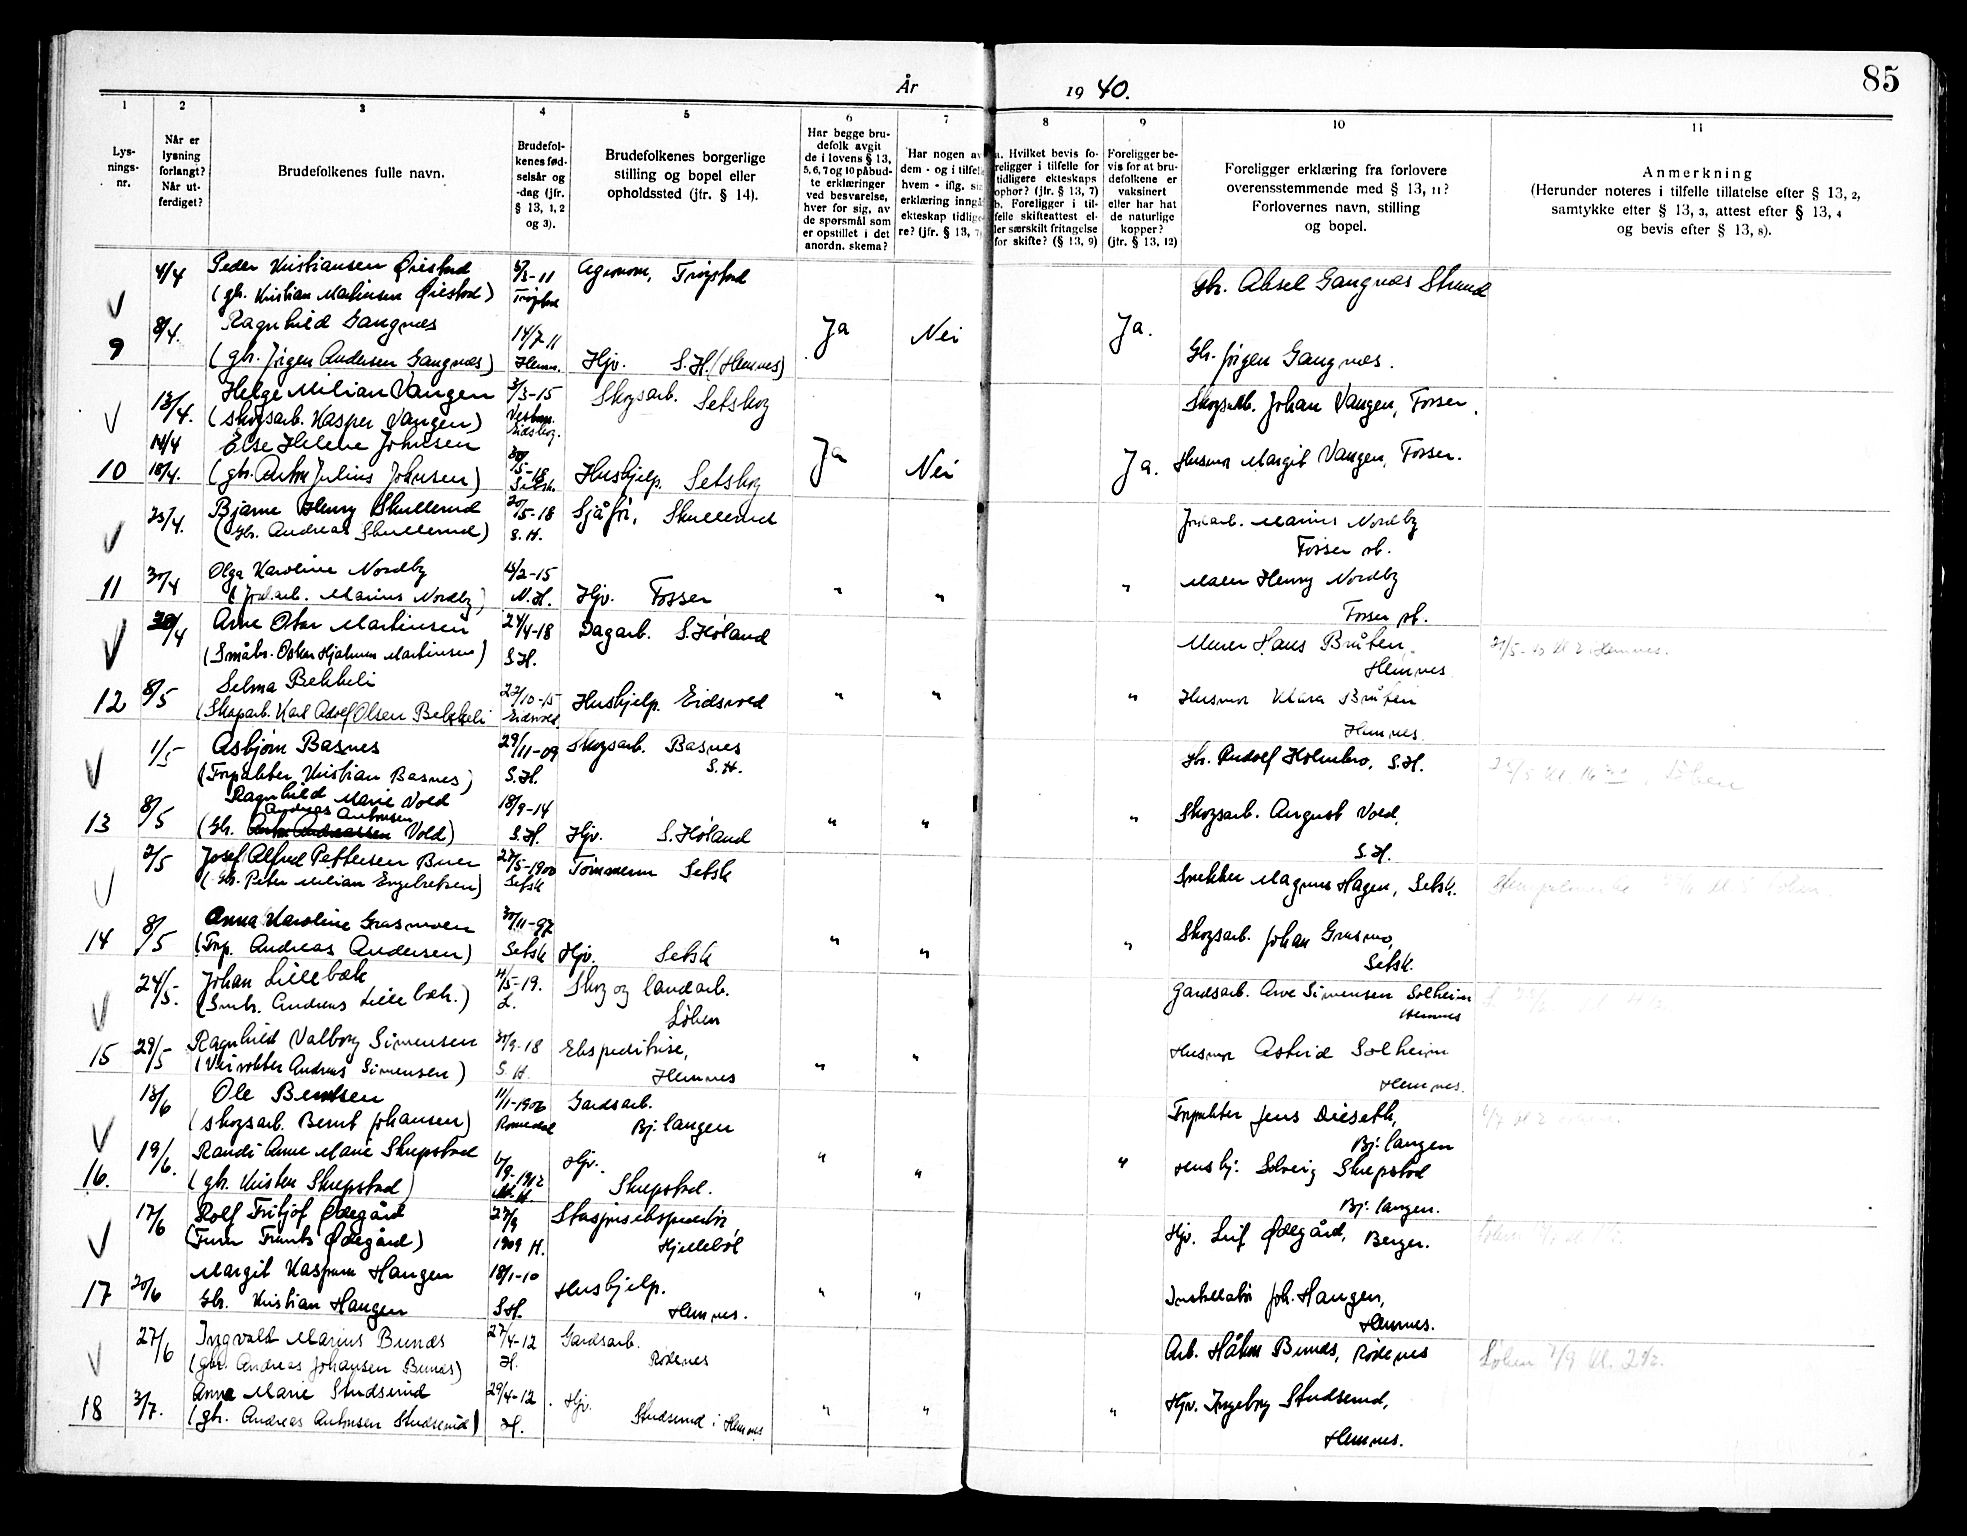 85
År 1940.
1 2 3 4 5 6 7 8 9 10 11
Lysnings-nr.
Når er lysning forlangt? Når utferdiget?
Brudefolkenes fulle navn.
Brudefolkenes fødselsår og -dag (jfr. § 13, 1, 2 og 3).
Brudefolkenes borgerlige stilling og bopel eller opholdssted (jfr. § 14).
Har begge brudefolk avgit de i lovens § 13, 5, 6, 7 og 10 påbudte erklæringer ved besvarelse, hver for sig, av de spørsmål som er opstillet i det anordn. skema?
Har nogen av dem - og i tilfelle hvem - iflg. sin erklæring inngå ekteskap tidligere? (jfr. § 13, 7)
a. Hvilket bevis foreligger i tilfelle for tidligere ekteskaps ophør? (jfr. § 13, 7) b. Foreligger i tilfelle skifteattest eller særskilt fritagelse for skifte? (§ 13, 9)
Foreligger bevis for at brudefolkene er vaksinert eller har hat de naturlige kopper? (jfr. § 13, 12)
Foreligger erklæring fra forlovere overensstemmende med § 13, 11? Forlovernes navn, stilling og bopel.
Anmerkning (Herunder noteres i tilfelle tillatelse efter § 13, 2, samtykke efter § 13, 3, attest efter § 13, 4 og bevis efter § 13, 8).
4/4 Peder Kristiansen Øiestad 5/3-11 Agronom, Trøgstad Gbr. Aksel Gangnæs Strand
(gbr. Kristian Martinsen Øiestad) Trøgstad
9 8/4. Ragnhild Gangnæs 14/7 11 Ja Nei Ja.
(gbr. Jørgen Andersen Gangnæs) Hemn. Hjv. S.H. (Hemnes) Gbr. Jørgen Gangnæs.
13/4. Helge Milian Vangen 3/3-15 Skogsarb. Setskog Skogsarb. Johan Vangen, Fosser.
(skogsarb. Kasper Vangen) Eidskog.
14/4 Else Helene Johnsen
10 18/4. (gbr. Anton Julius Johnsen) 30/5-18 Setsk. Hushjelp. Setskog Ja Nei Ja. Husmor Margit Vangen, Fosser.
25/4. Bjarne Henry Skullerud 20/5-18 Sjåfør, Skullerud Jordarb. Marius Nordby
(Gbr. Andreas Skullerud) S. H. Fosser st.
11 30/4 Olga Karoline Nordby 15/2-15 " " " Maler Henry Nordby
(Jordarb. Marius Nordby) N.H. Hjv. Fosser Fosser st.
30/4 Arne Oskar Martinsen 24/4-18 Dagarb. S. Høland Murer Hans Bråten,
(Småbr. Oskar Hjalmar Martinsen) S.H. Hemnes
12 8/5 Selma Bekkeli 22/10-15 Hushjelp. Eidsvold " " " Husmor Klara Bråten
(Skogarb. Karl Adolf Olsen Bekkeli Eidsvold Hemnes.
1/5 Asbjørn Basnes 29/11-09 Skogsarb. Basnes Gbr. Rudolf Holmbro, S.H.
(Forpakter Kristian Basnes) S.H. S.H.
Ragnhild Marie Vold
13 8/5 Andreas Antonsen 18/9-14 " " " Skogsarb. August Vold,
(Gbr. Vold) S.H. Hjv. S. Høland S.H.
2/5 Josef Alfred Pettersen Buer 27/5-1900 Tømmerm Setsk Snekker Magnus Hagen, Setsk.
(Gbr. Peter Milian Engebretsen) Setsk
14 8/5 Anna Karoline Grasmoen 30/11-97 " " " Skogsarb. Johan Grasmo,
(Forp. Andreas Andersen) Setsk Hjv. Setsk Setsk.
24/5. Johan Lillebæk 11/5-19. Skog og landarb. Gardsarb. Arve Simensen Solheim
(Småbr. Andreas Lillebæk.) L. Løken Hemnes
15 29/5 Ragnhild Valborg Simensen 30/9-18 Ekspeditrise, " " Husmor Astrid Solheim
(Veivokter Andreas Simensen) S. H. Hemnes Hemnes.
13/6 Ole Berntsen 11/1-1906 Gardsarb. Forpakter Jens Dieseth,
(skogsarb. Bernt Johansen) Romedal Bj: langen Bj: langen
16. 19/6. Randi Anne Marie Skrepstad 6/9-1912 Hjv. " " " Hushj. Solveig Skrepstad
(gbr. Kristen Skrepstad) Skrepstad. Bj: langen.
17/6 Rolf Fritjof Ødegård 27/8 1909 H. Stasjonsekspeditør, Hjv. Leif Ødegård, Berger.
(Ødegård) Hjellebøl
17 20/6 Margit Kaspara Haugen 18/1-10 Hushjelp. " " Installatør Joh. Haugen,
Gbr. Kristian Haugen S.H. Hemnes. Hemnes.
27/6 Ingvald Marius Bunæs 27/4-12 Gardsarb. Arb. Håkon Bunæs, Rødenes Løken 7/9 kl. 2 1/2.
(gbr. Andreas Johansen Bunæs) H. Rødenes
18 3/7. Anna Marie Studserud 29/4-12 Hjv. " " " Hjv. Ingeborg Studserud,
(gbr. Andreas Antonsen Studserud) H. Studserud i Hemnes Hemnes.